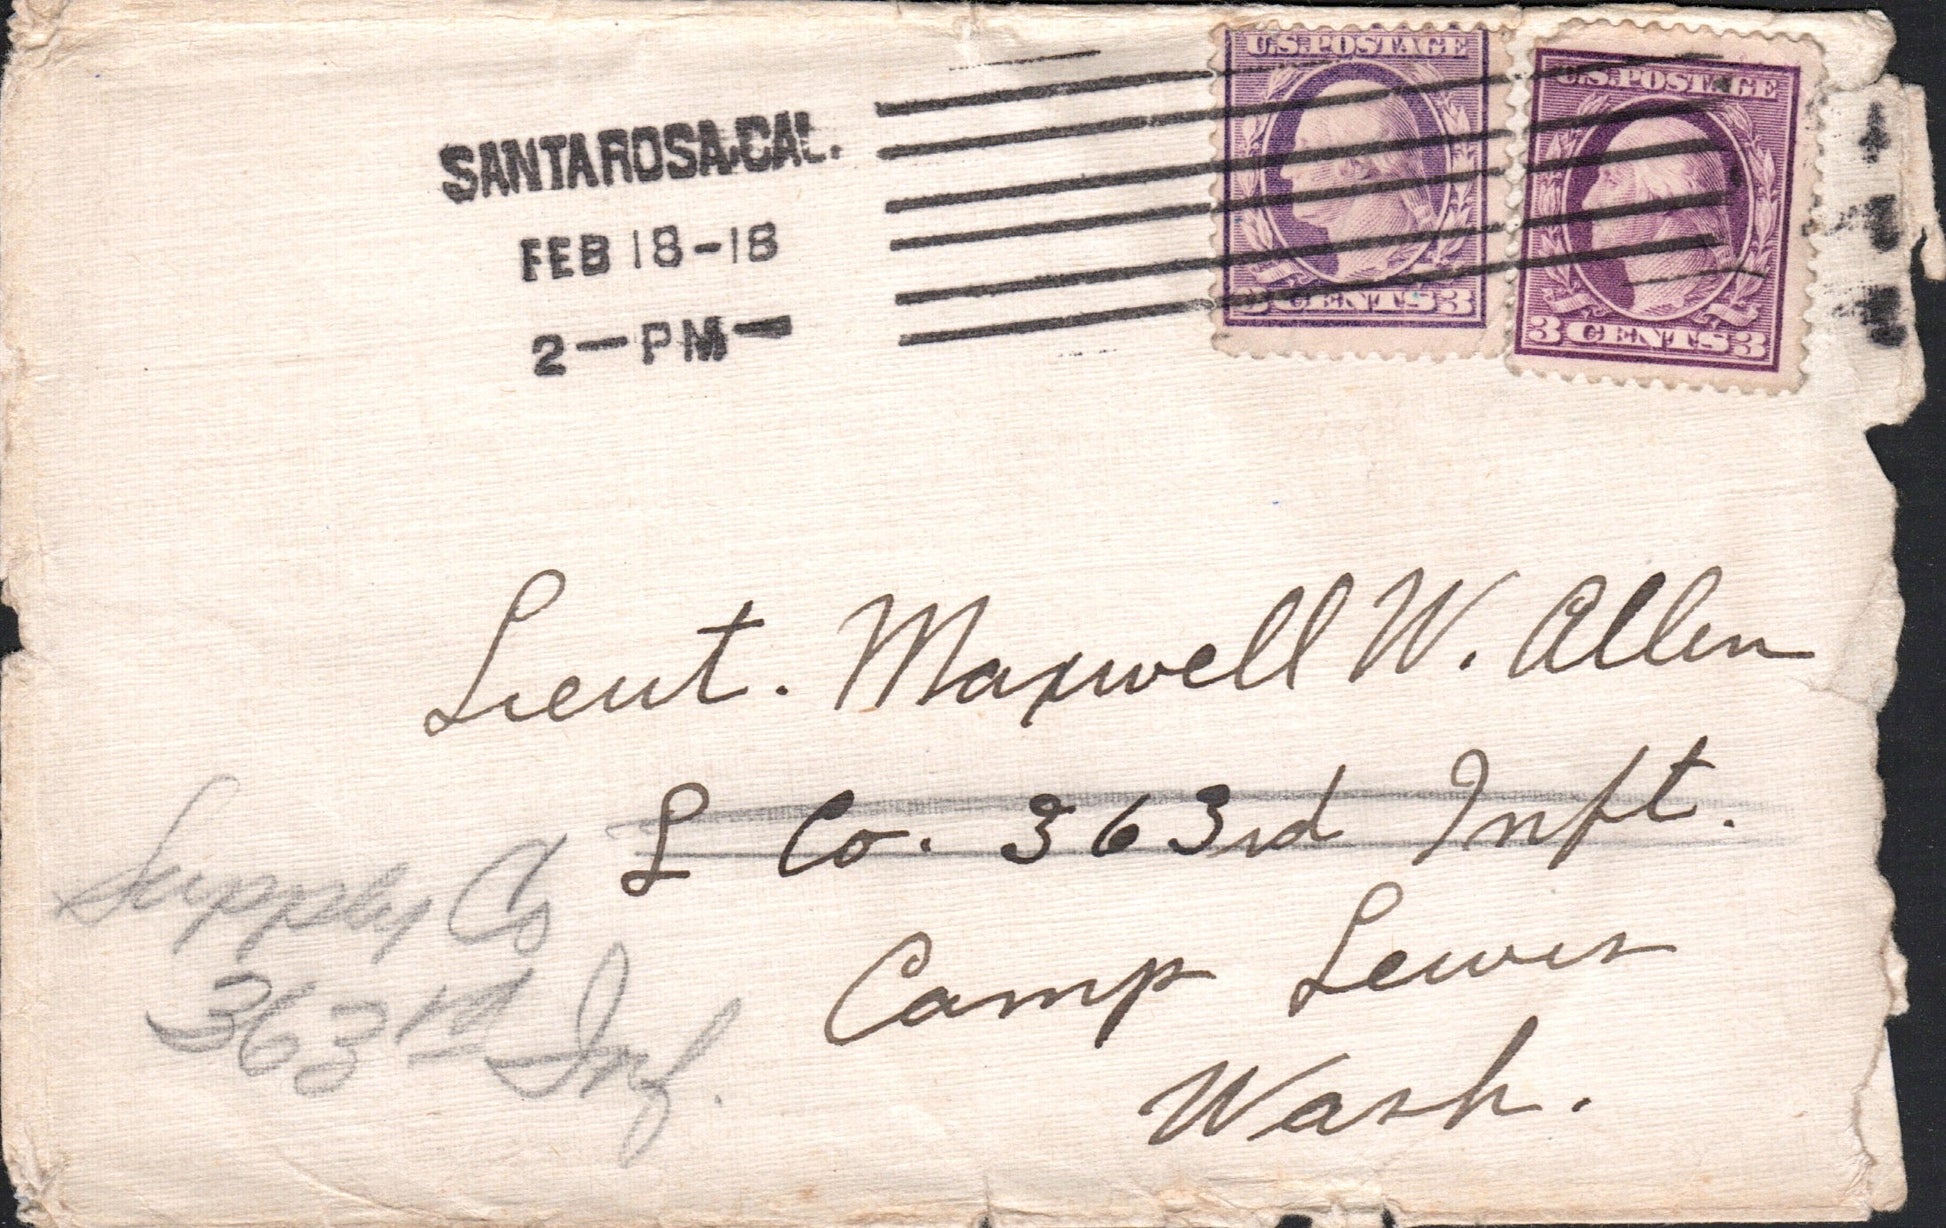 SANTA ROSA, CAL.
FEB 18-18
2-PM-
U.S. POSTAGE
3 CENTS 3
U.S. POSTAGE
3 CENTS 3
Lieut. Maxwell W. Allen
L Co. 363rd Inft.
Camp Lewis
Wash.
Supply Co
363rd Inf.